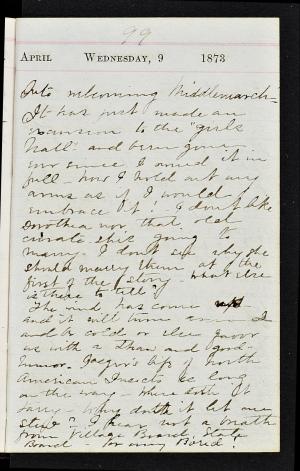 99
APRIL WEDNESDAY, 9 1873
Into welcoming Middlemarch-
It has just made an
excursion to the "girls
hall" and been gone
ever since I owned it in
full - now I hold out my
arms as if I would
embrace it! I don't like
Dorothea nor that old
curate she's going to
marry - I don't see why she
should marry them at the
first of the story - what else
is there to tell?
The wind has come
and it will turn
and be cold or else favor
us with a thaw and good-
humor. list of North
American Insects is long
on the way - where doth it
tarry - Why doth it let me
I hear not a breath
from Village Board, State
Board - or any Board!